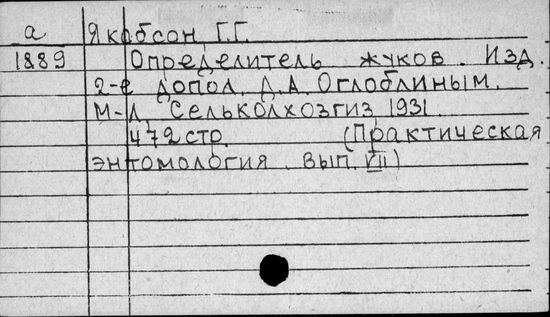 а Якобсон, Г.Г.
1889 Определитель жуков. Изд.
2-е допол. Д.А. Оглоблиным.
М-Л, Сельколхозгиз, 1931.
472 стр. (Практическая
энтомология. Вып. VII)